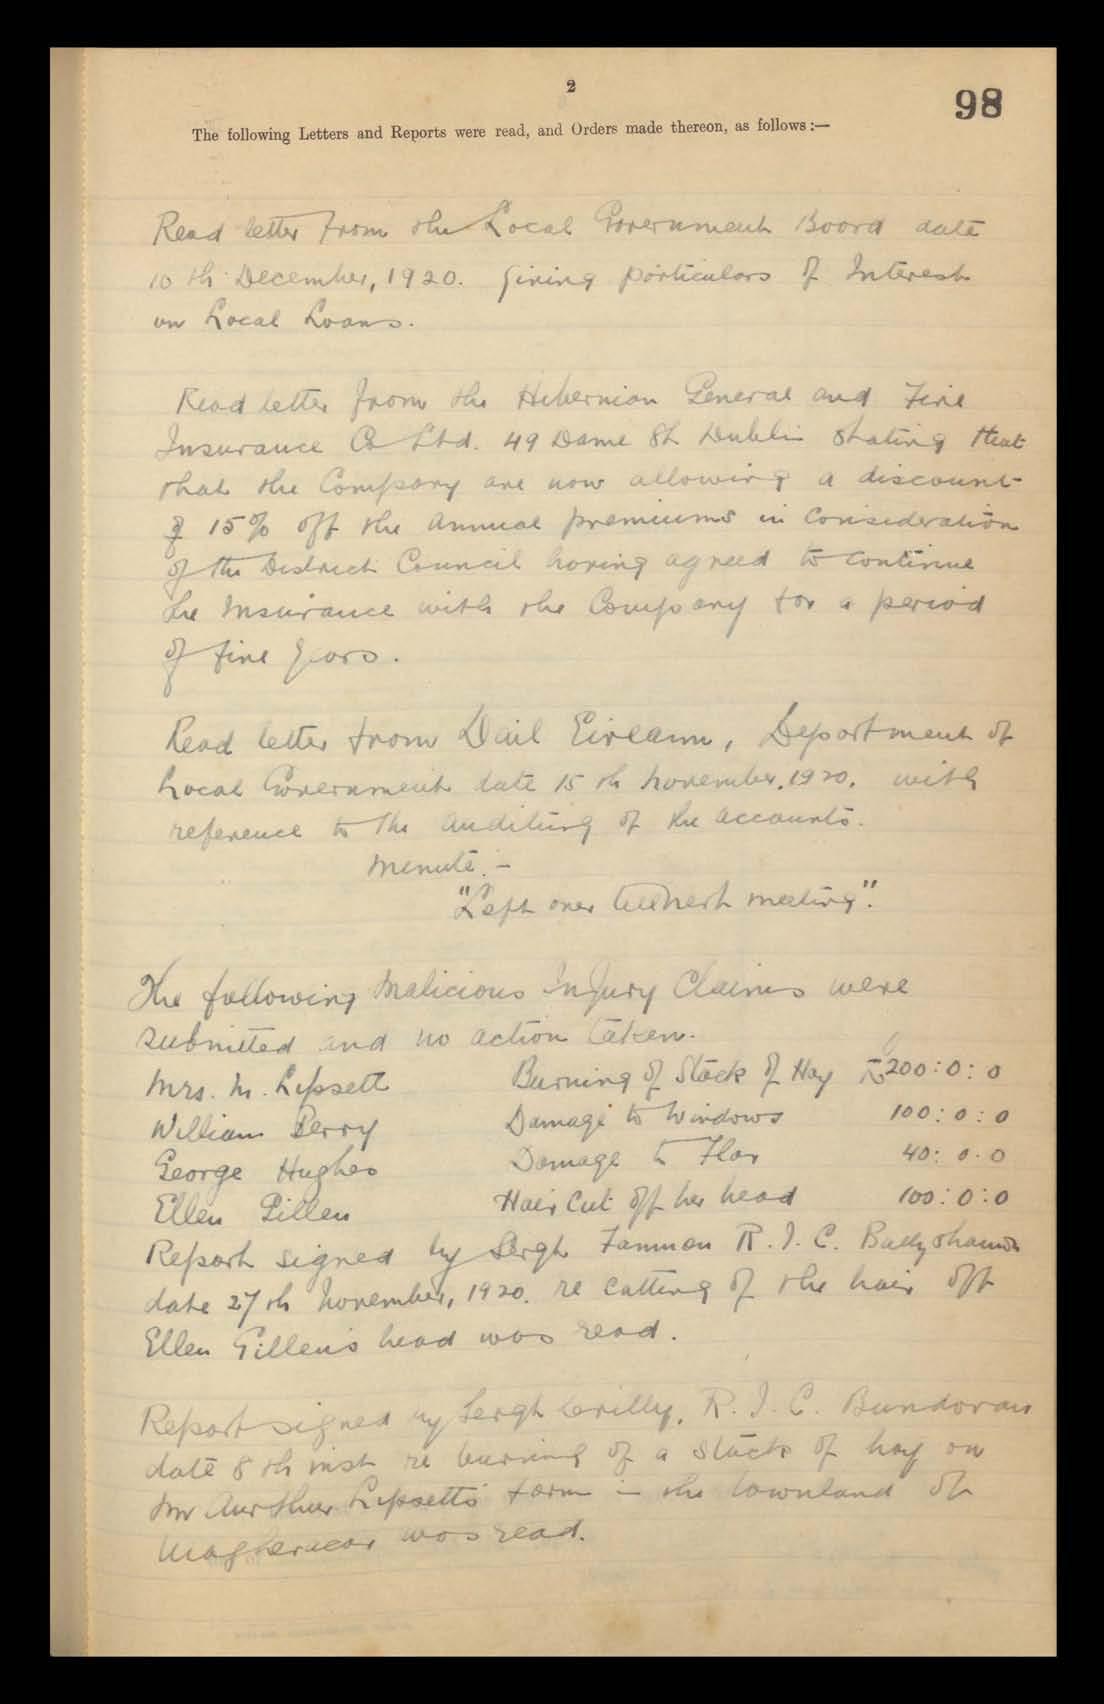 2
98
The following Letters and Reports were read, and Orders made thereon, as follows:—
Read letter from the Local Government Board date
10 th December, 1920. giving particulars of Interest
on Local Loans.
Read letter from the Hibernian General and Fire
Insurance Co Ltd. 49 Dame St Dublin stating that
that the Company are now allowing a discount
of 15% off the annual premiums in consideration
of the District Council having agreed to continue
the Insurance with the Company for a period
of five years.
Read letter from Dail Eireann, Department of
Local Government date 15 th November, 1920. with
reference to the auditing of the accounts.
Minute:-
"Left over till next meeting".
The following Malicious Injury Claims were
submitted and no action taken.
Mrs. M. Lipsett Burning of Stack of Hay 200:0:0
William Perry Damage to Windows 100:0:0
George Hughes Damage to Flax 40:0.0
Ellen Gillen Hair Cut off her head 100:0:0
Report signed by Sergt Fannon R.I.C. Ballyshannon
date 27 th November, 1920. re cutting of the hair off
Ellen Gillen's head was read.
Report signed by Sergt Crilly, R.I.C. Bundoran
date 8 th inst re burning of a stack of hay on
Mr Aurthur Lipsetts farm in the townland of
was read.